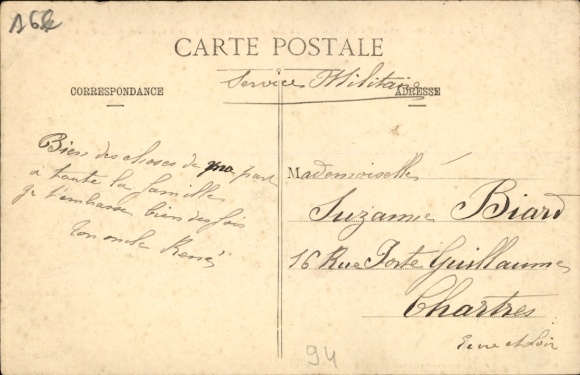 CARTE POSTALE
Service Militaire
CORRESPONDANCE
ADRESSE
Bien des choses de ma part
a toute la famille
je t'embrasse bien des fois
ton oncle René
Mademoiselle
Suzanne Biard
16 Rue Porte Guillaume
Chartres
Eure et Loir
94